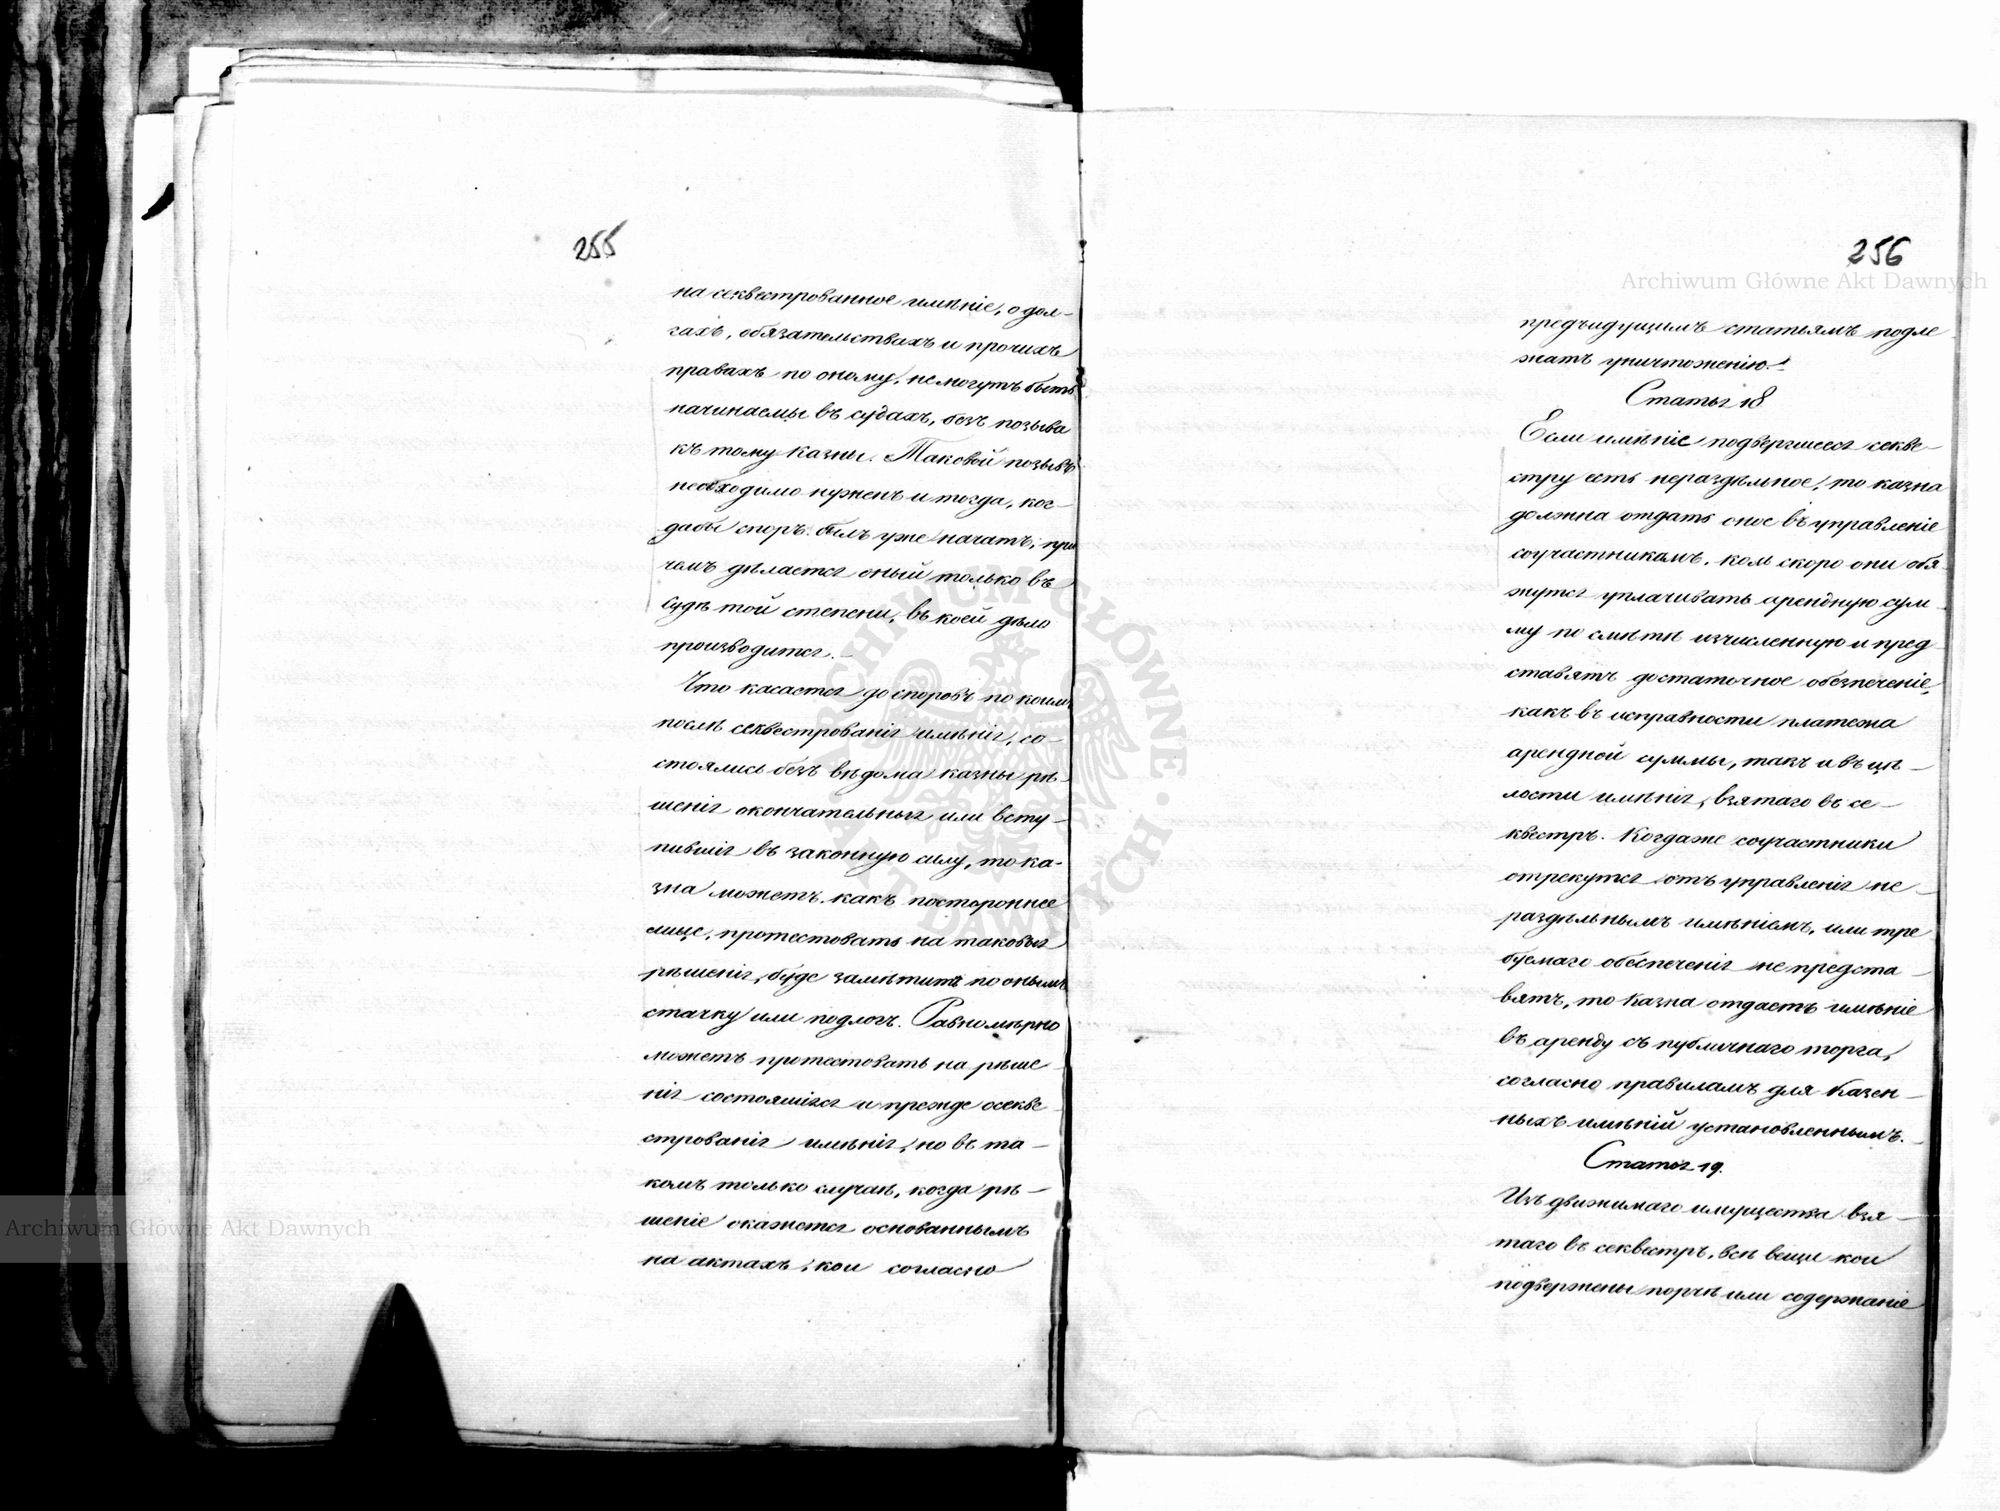 255
на секвестрованное имѣніе, о дол-
гахъ, обязательствахъ и прочихъ
правахъ по оному, не могутъ быть
начинаемы въ судахъ, безъ позыва
къ тому казны. Таковой позывъ
необходимо нуженъ и тогда, ког-
дабы споръ былъ уже начатъ; при
чемъ дѣлается оный только въ
судѣ той степени, въ коей дѣло
производится.-
Что касается до споровъ по коимъ
послѣ секвестрованія имѣнія, со-
стоялись безъ вѣдома казны рѣ-
шенія окончательныя или всту-
пившія въ законную силу, то ка-
зна можетъ, какъ постороннее
лице, протестовать на таковыя
рѣшенія, буде замѣтитъ по онымъ
стачку или подлогъ. Равномѣрно
можетъ протестовать на рѣше-
нія состоявшіяся и прежде осекве-
строванія имѣнія, но въ та-
комъ только случаѣ, когда рѣ-
шеніе окажется основаннымъ
на актахъ, кои согласно
256
Archiwum Główne Akt Dawnych
предъидущимъ статьямъ подле-
жатъ уничтоженію.-
Статья 18
Если имѣніе подвергшееся секве-
стру есть нераздѣльное, то казна
должна отдать оное въ управленіе
соучастникамъ, коль скоро они обя-
жутся уплачивать арендную сум-
му по смѣтѣ изчисленную и пред-
ставятъ достаточное обезпеченіе,
какъ въ исправности платежа
арендной суммы, такъ и въ цѣ-
лости имѣнія, взятаго въ се-
квестръ. Когда же соучастники
отрекутся отъ управленія не-
раздѣльнымъ имѣніемъ, или тре-
буемаго обеспеченія не предста-
вятъ, то Казна отдастъ имѣніе
въ аренду съ публичнаго торга,
согласно правиламъ для Казен-
ныхъ имѣній установленнымъ.
Статья 19.
Изъ движимаго имущества взя-
таго въ секвестръ, всѣ вещи кои
подвержены порчѣ или содержаніе
ARCHIWUM GŁÓWNE AKT DAWNYCH
Archiwum Główne Akt Dawnych